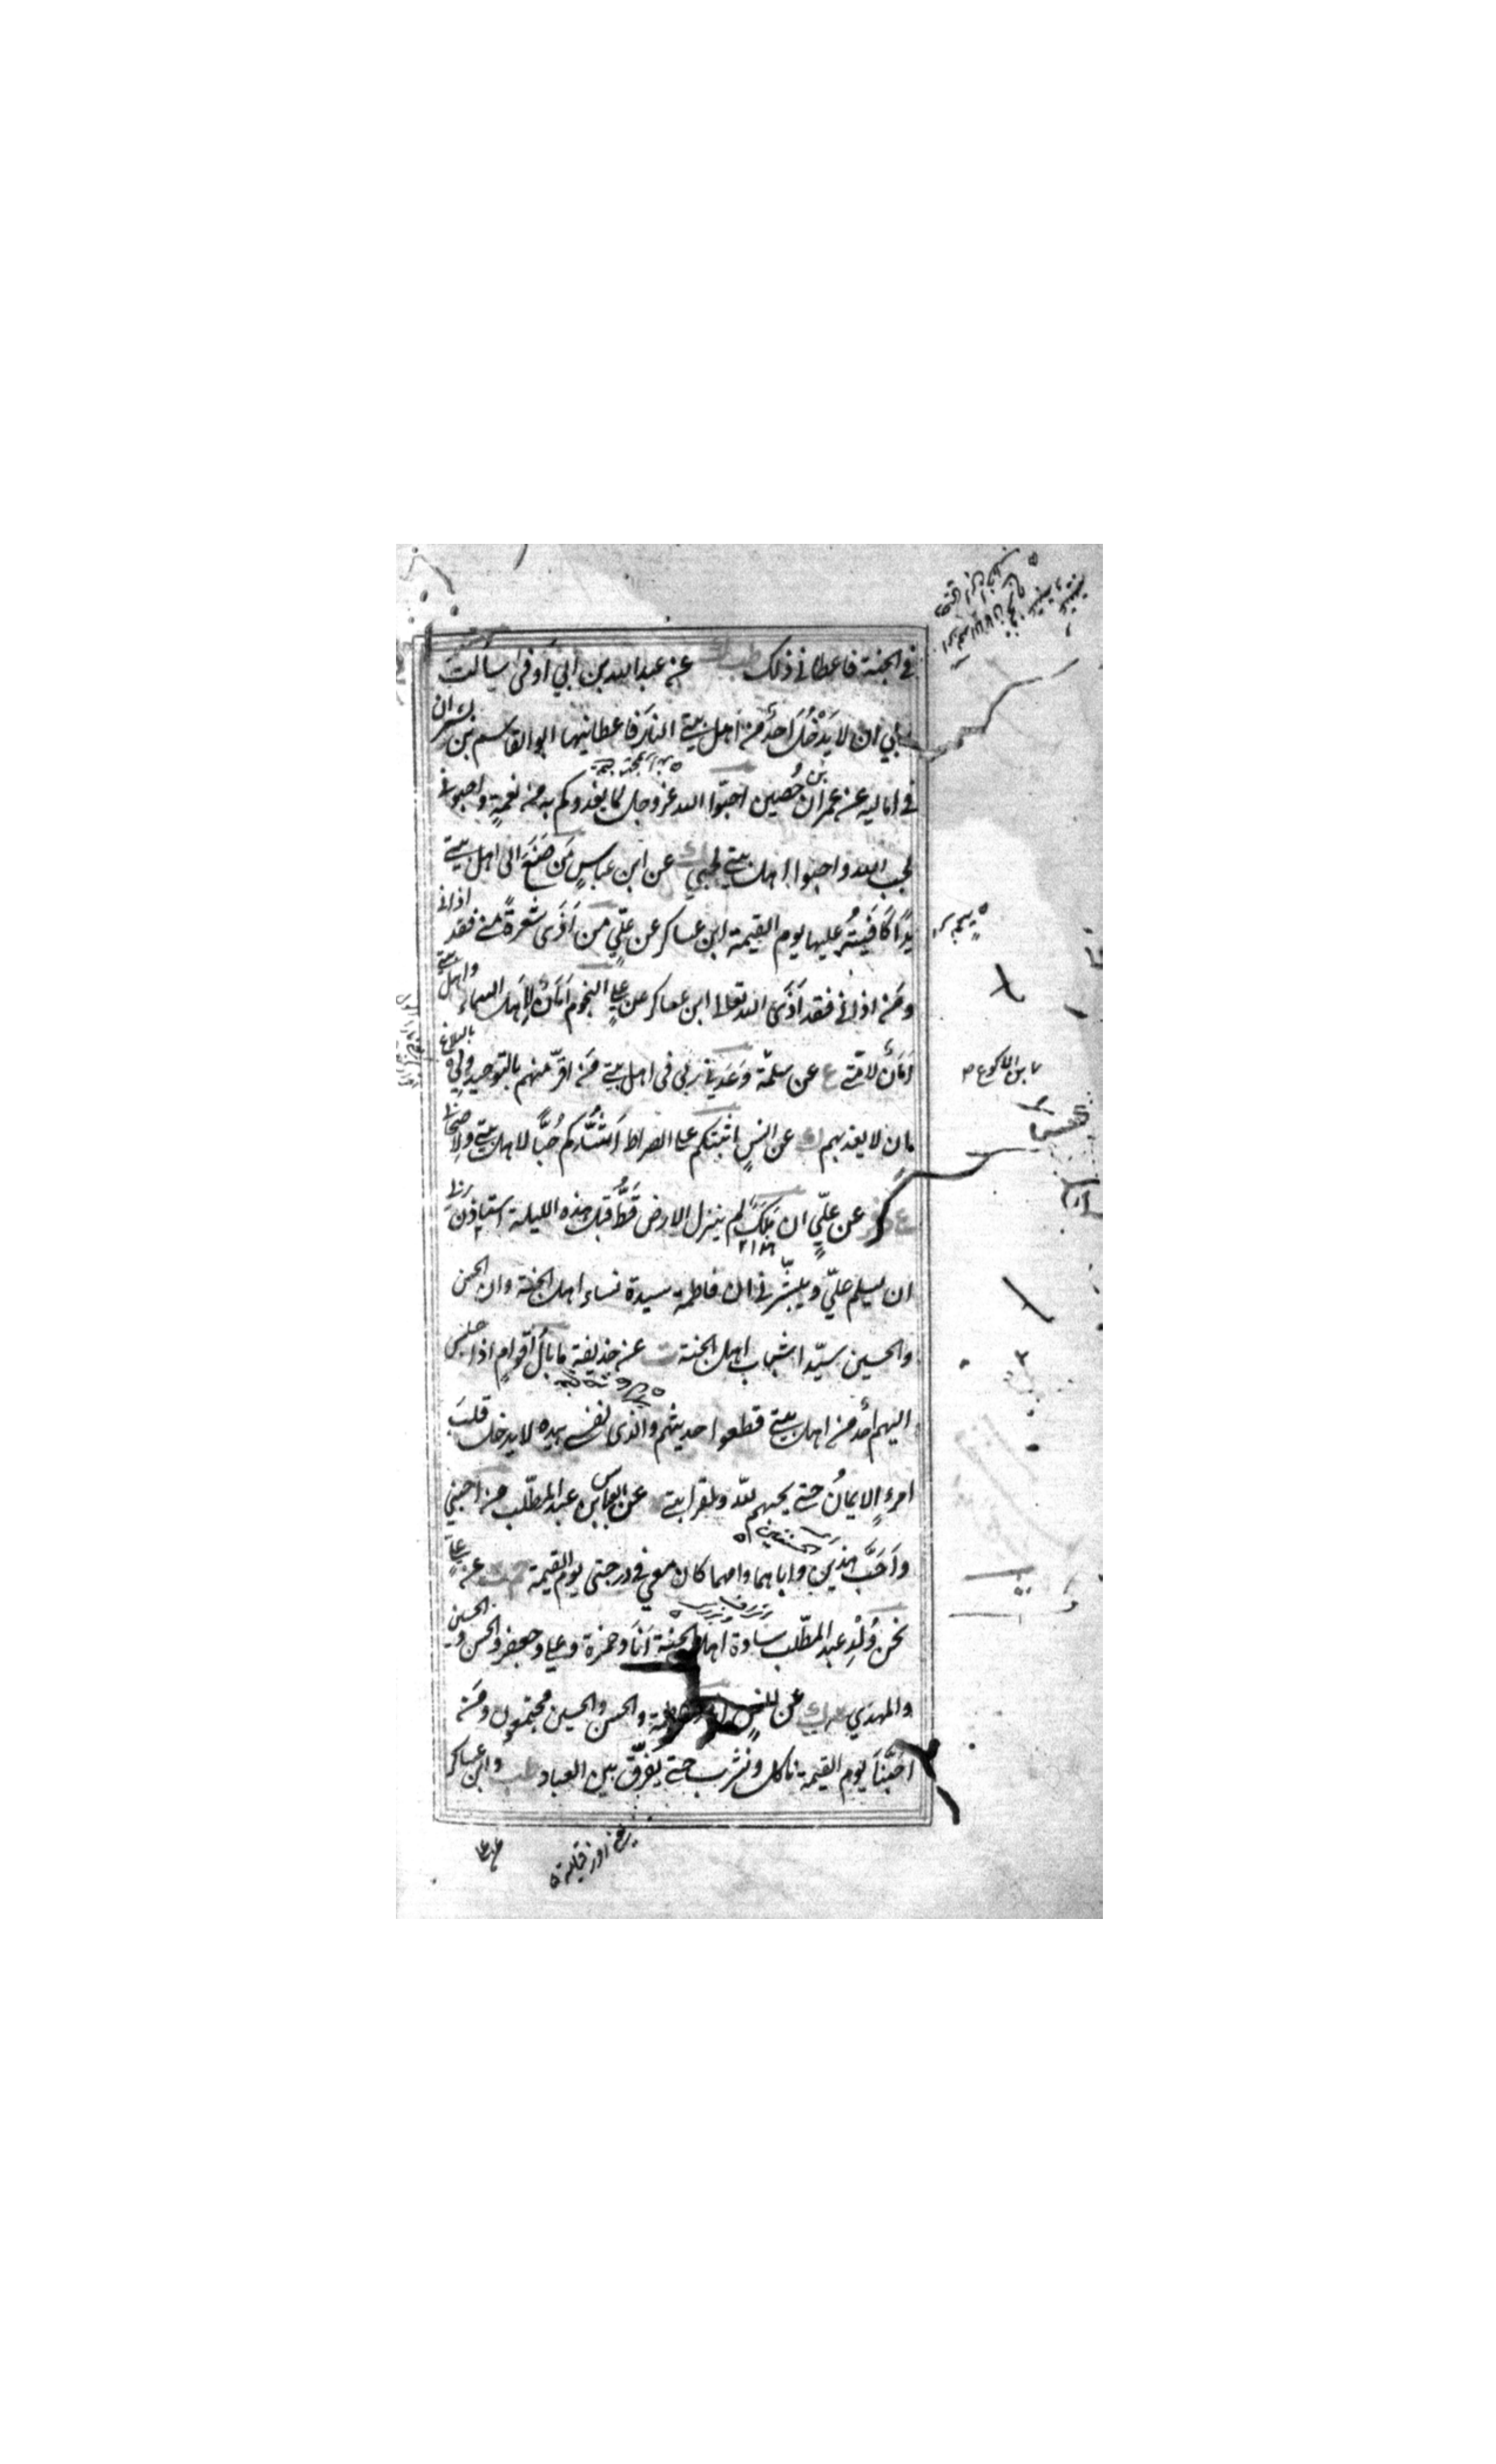 في الجنة فاعطاني ذلك طب ك عن عبد الله بن ابي اوفى سالت
ربي ان لا يَدْخُلَ اَحَدٌ من اهل بيتي النار فاعطانيها ابو القاسم بن بشران
في اماليه عن عمران بن حُصين احبّوا الله عز وجل لما يغذوكم به من نعمةٍ واحبوني
لحب الله واحبوا اهل بيتي لحبي ك عن ابن عباسٍ مَن صَنَعَ الى اهل بيتي
يَدًا كَافَيْتُهُ عليها يوم القيمة ابن عساكر عن علّيٍ من اَذَى شعْرةً مني فقد اذاني
ومَن اذاني فقد اَذَى الله تعالى ابن عساكر عن عليٍ النجوم اَمَانٌ لِاَهل السماء واهل بيتي
اَمَانٌ لامتي ع عن سلمة وَعَدَني ربي في اهل بيتي مَن اقرّ منهم بالتوحيد ولي بالبلاغ
ان لا يعذبهم ك عن انسٍ اثبتكم على الصراط اَشَدُّكم حُبًّا لاهل بيتي ولاصحابي
عد فر عن علّيٍ ان مَلَكًا لم ينزل الارض قَطُّ قبل هذه الليلة استاذن ربَه
ان يسلم علّي ويبشّرني ان فاطمة سيدة نساء اهل الجنة وان الحسن
والحسين سيّدا شباب اهل الجنة ت عن حذيفة ما بالُ اقوامٍ اذا جلس
اليهم احدٌ من اهل بيتي قطعوا حديثهم والذي نفسي بيده لا يدخل قلبَ
امرءٍ الايمانُ حتى يحبهم لله ولقرابتي ه عن العباس بن عبد المطّلب من احبني
واَحَبَّ هذَين واباهما وامهما كان معي في درجتي يوم القيمة حم ت عن عليٍّ
نحن وُلْدِ عبد المطّلب سَادة اهل الجنة اَنَا وحمزة وعلي وجعفر والحسن والحسين
والمهدي ه ك عن انسٍ انا وفاطمة والحسن والحسين مجتمعون ومَن
احَبَّنَا يوم القيمة ناكل ونشرب حتى يَفَرّقَ بين العباد طب وابن عساكر
ابن الاكوع